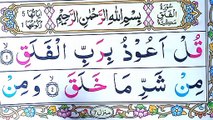 سُورَةُ الْفَلَقِ
بِسْمِ اللهِ الرَّحْمٰنِ الرَّحِيْمِ
قُلْ اَعُوْذُ بِرَبِّ الْفَلَقِ
مِنْ شَرِّ مَا خَلَقَ وَمِنْ